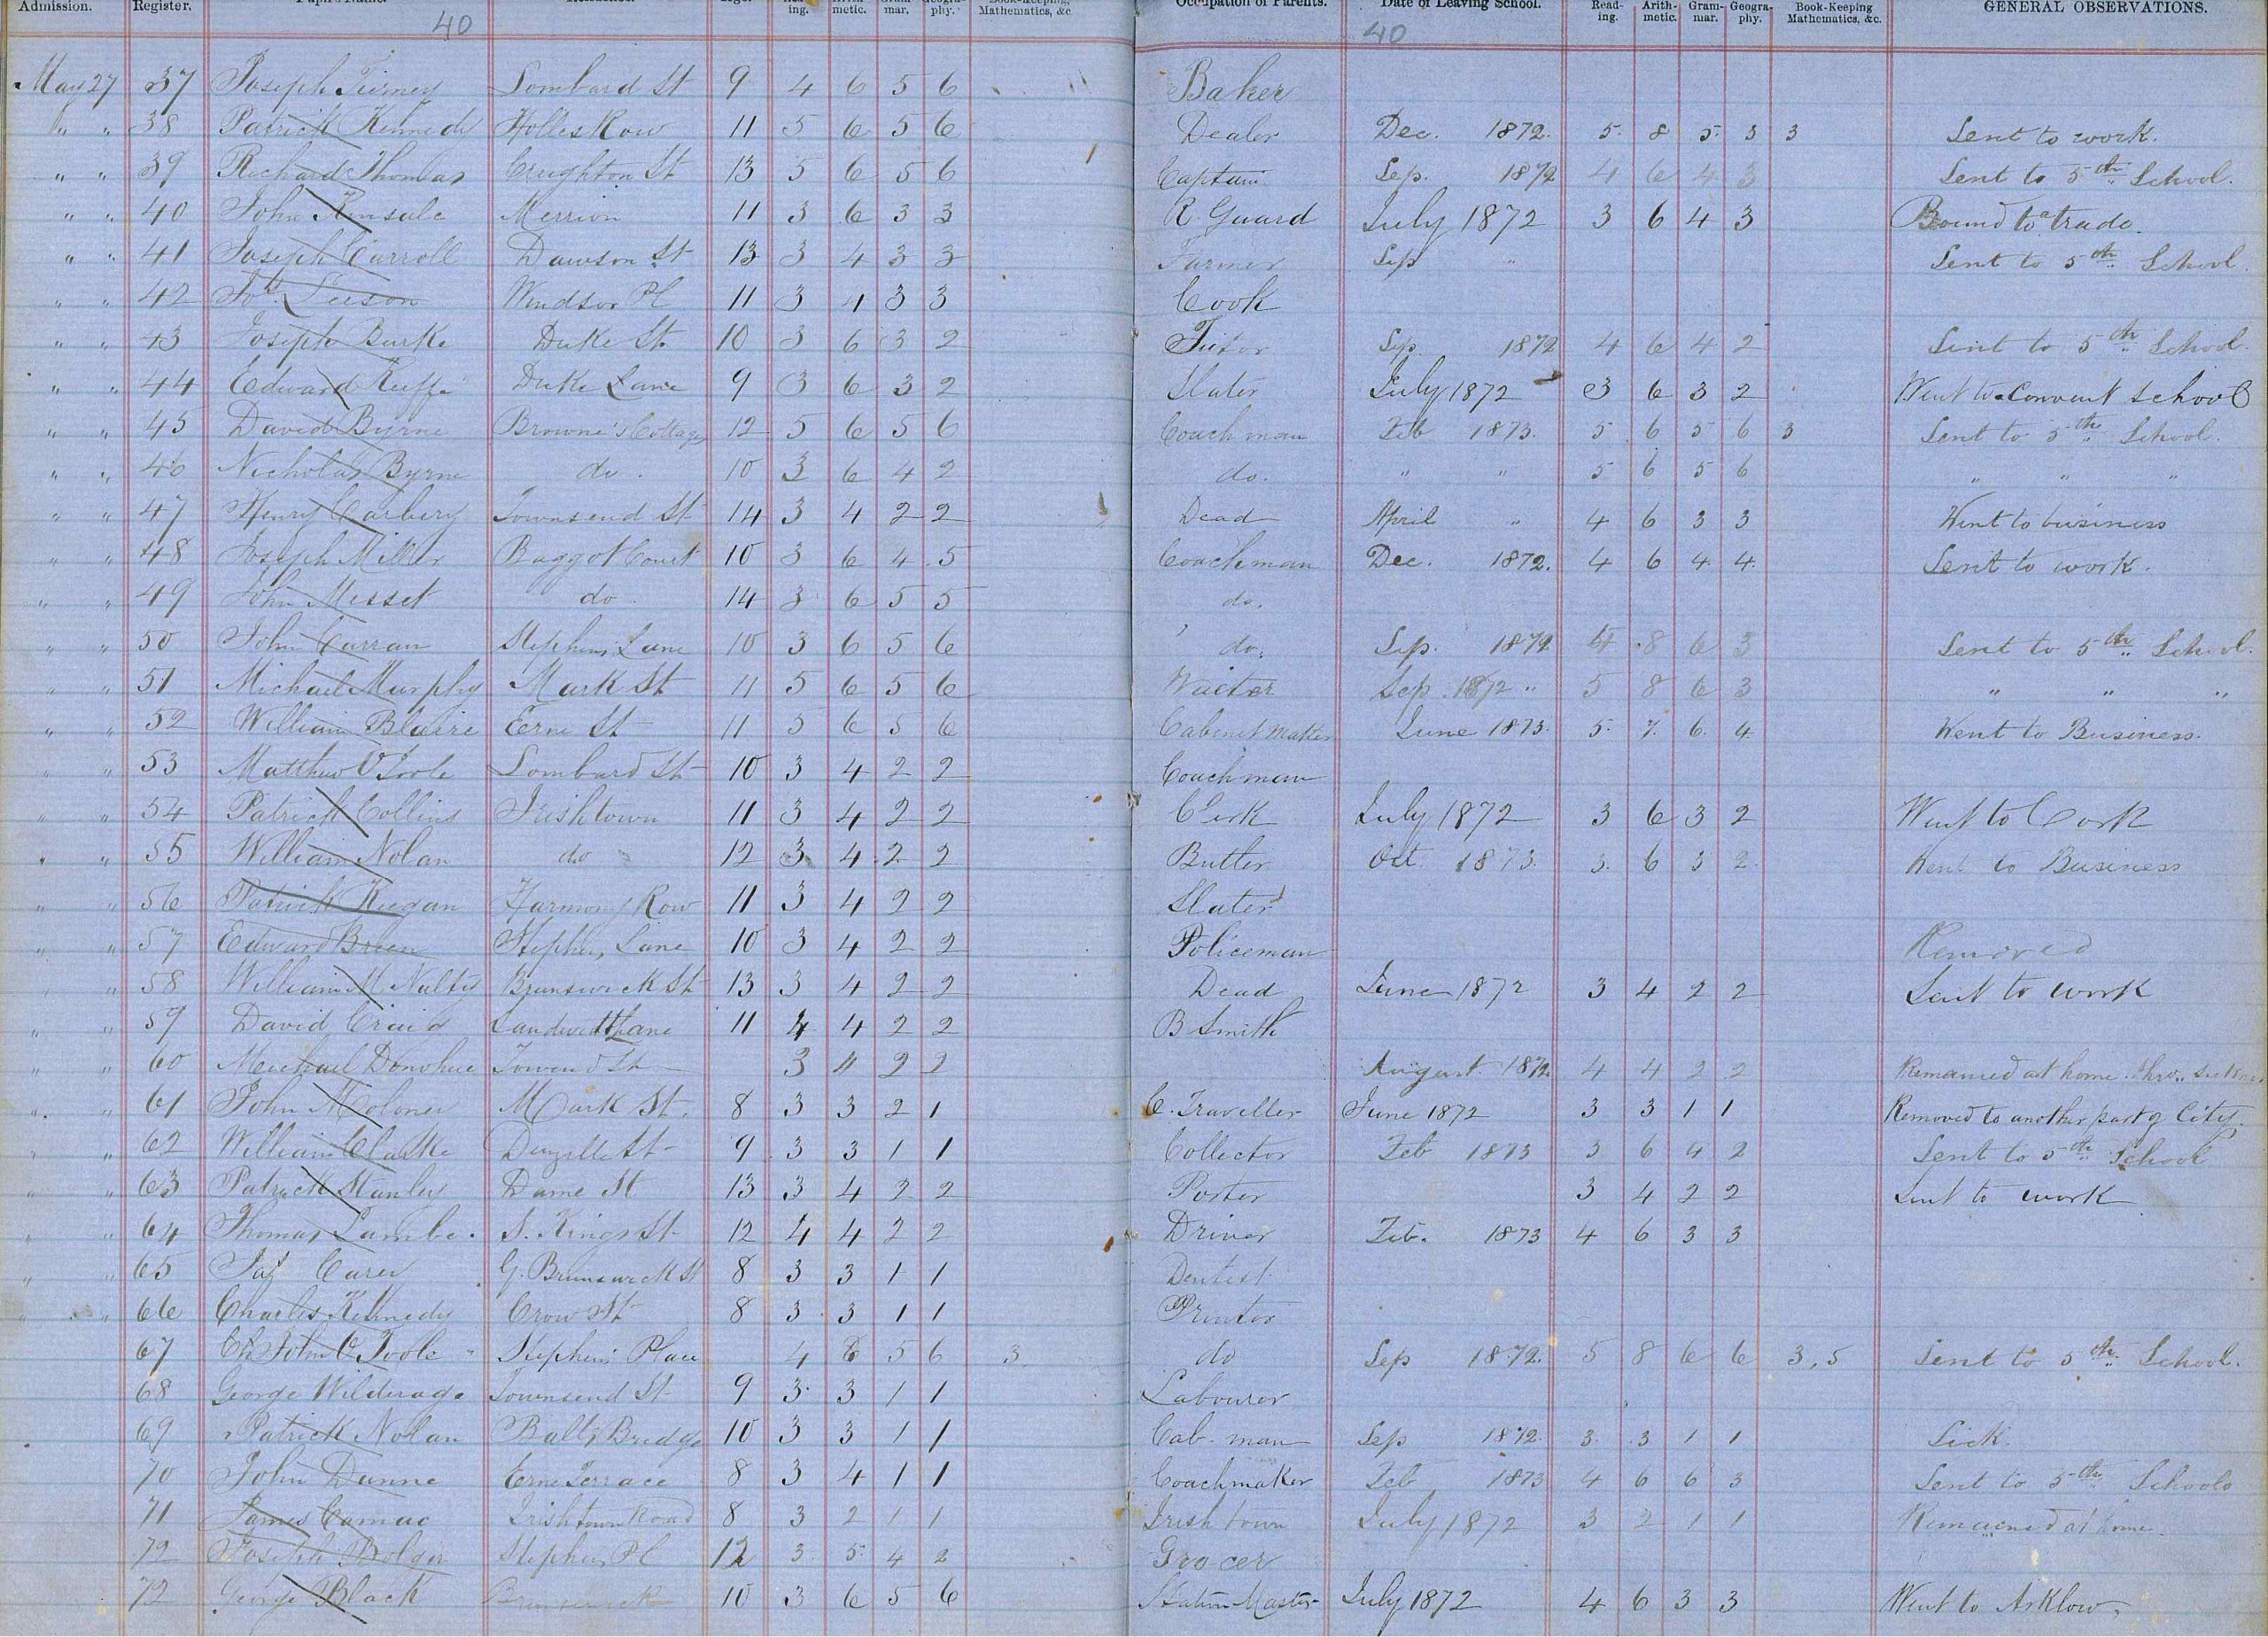 Admission. Register. Pupil's Name. Residence. Age. Read-ing. Arith-metic. Gram-mar. Geogra-phy. Book-Keeping, Mathematics, &c. Occupation of Parents. Date of Leaving School. Read-ing. Arith-metic. Gram-mar. Geogra-phy. Book-Keeping Mathematics, &c. GENERAL OBSERVATIONS.
40 40
May 27 37 Joseph Tierney Lombard St 9 4 6 5 6 Baker
" " 38 Patrick Kennedy Holles Row 11 5 6 5 6 Dealer Dec. 1872. 5. 8 5. 3 3 Sent to work.
" " 39 Richard Thomas Creighton St 13 5 6 5 6 Captain Sep. 1872 4 6 4 3 Sent to 5th School.
" " 40 John Kinsale Merrion 11 3 6 3 3 R. Guard July 1872 3 6 4 3 Bound to a trade.
" " 41 Joseph Carroll Dawson St 13 3 4 3 3 Farmer Sep " Sent to 5th School.
" " 42 Leeson Windsor Pl 11 3 4 3 3 Cook
" " 43 Joseph Burke Duke St. 10 3 6 3 2 Tutor Sep 1872 4 6 4 2 Sent to 5th School.
" " 44 Edward Keeffe Duke Lane 9 3 6 3 2 Slater July 1872 3 6 3 2 Went to a Convent School
" " 45 David Byrne Browne's Cottages 12 5 6 5 6 Coachman Feb 1873. 5 6 5 6 3 Sent to 5th School.
" " 46 Nicholas Byrne do. 10 3 6 4 2 do. " " 5 6 5 6 " " "
" " 47 Henry Carbery Townsend St 14 3 4 2 2 Dead April " 4 6 3 3 Went to business
" " 48 Joseph Miller Baggot Court 10 3 6 4 5 Coachman Dec. 1872. 4 6 4 4. Sent to work.
" " 49 John Messet do 14 3 6 5 5 do.
" " 50 John Curran Stephens Lane 10 3 6 5 6 do. Sep. 1872 8 6 3 Sent to 5th School.
" " 51 Michael Murphy Mark St 11 5 6 5 6 Waiter Sep. 1872 " 5 8 6 3 " " "
" " 52 William Erne St 11 5 6 5 6 Cabinet Maker June 1873. 5. 7. 6. 4. Went to Business.
" " 53 Matthew O'Toole Lombard St 10 3 4 2 2 Coachman
" " 54 Patrick Collins Irishtown 11 3 4 2 2 Clerk July 1872 3 6 3 2 Went to Cork
" " 55 William Nolan do 12 3 4 2 2 Butler Oct 1873. 3. 6 3 2. Went to Business
" " 56 Patrick Keegan Harmony Row 11 3 4 2 2 Slater
" " 57 Edward Breen Stephens Lane 10 3 4 2 2 Policeman Removed
" " 58 William McNulty Brunswick St 13 3 4 2 2 Dead June 1872 3 4 2 2 Sent to work
" " 59 David Craig Sandwith Lane 11 4 4 2 2 B Smith
" " 60 Meichael Donohue Townd St 3 4 2 2 August 1872. 4 4 2 2 Remained at home thro"
" " 61 John Moloney Mark St. 8 3 3 2 1 C. Traveller June 1872 3 3 1 1 Removed to another part of City.
" " 62 William Clarke Denzille St 9 3 3 1 1 Collector Feb 1873 3 6 4 2 Sent to 5th School
" " 63 Patrick Stanley Dame St 13 3 4 2 2 Porter 3 4 2 2 Sent to work
" " 64 Thomas Lambe. S. Kings St 12 4 4 2 2 Driver Feb. 1873 4 6 3 3
" " 65 Jas Carey G. Brunswick St 8 3 3 1 1 Dentist
" " 66 Charles Kennedy Crow St 8 3 3 1 1 Printer
67 John O'Toole Stephens Place 4 8 5 6 3. do Sep 1872. 5 8 6 6 3,5 Sent to 5th School.
68 George Wilderage Townsend St 9 3 3 1 1 Labourer
69 Patrick Nolan Balls Bridge 10 3 3 1 1 Cab-man Sep 1872. 3. 3 1 1 Sick.
70 John Dunne Erne Terrace 8 3 4 1 1 Coachmaker Feb 1873 4 6 6 3 Sent to 5th Schools
71 James Camac Irishtown Road 8 3 2 1 1 Irishtown July 1872 3 2 1 1 Remained at home.
72 Joseph Bolger Stephens Pl 12 3 5 4 2 Grocer
72 George Black Brunswick 10 3 6 5 6 Station Master July 1872 4 6 3 3 Went to Arklow.